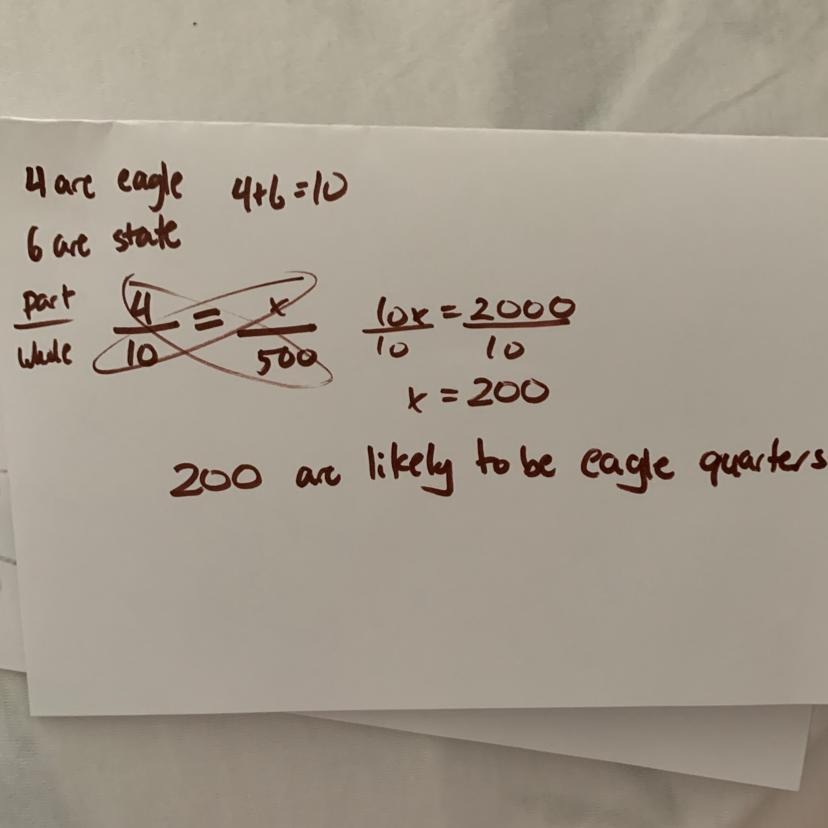 4 are eagle 4+6=10
6 are state
part 4 = x 10x = 2000
whole 10 500 10 10
x = 200
200 are likely to be eagle quarters